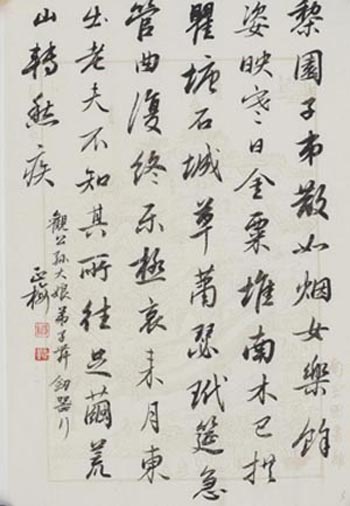 黎園子弟散如烟女樂餘
姿映寒日金粟堆南木已拱
瞿塘石城草蕭瑟玳筵急
管曲復終乐極哀来月東
出老夫不知其所往足繭荒
山轉愁疾
觀公孫大娘弟子舞劍器行